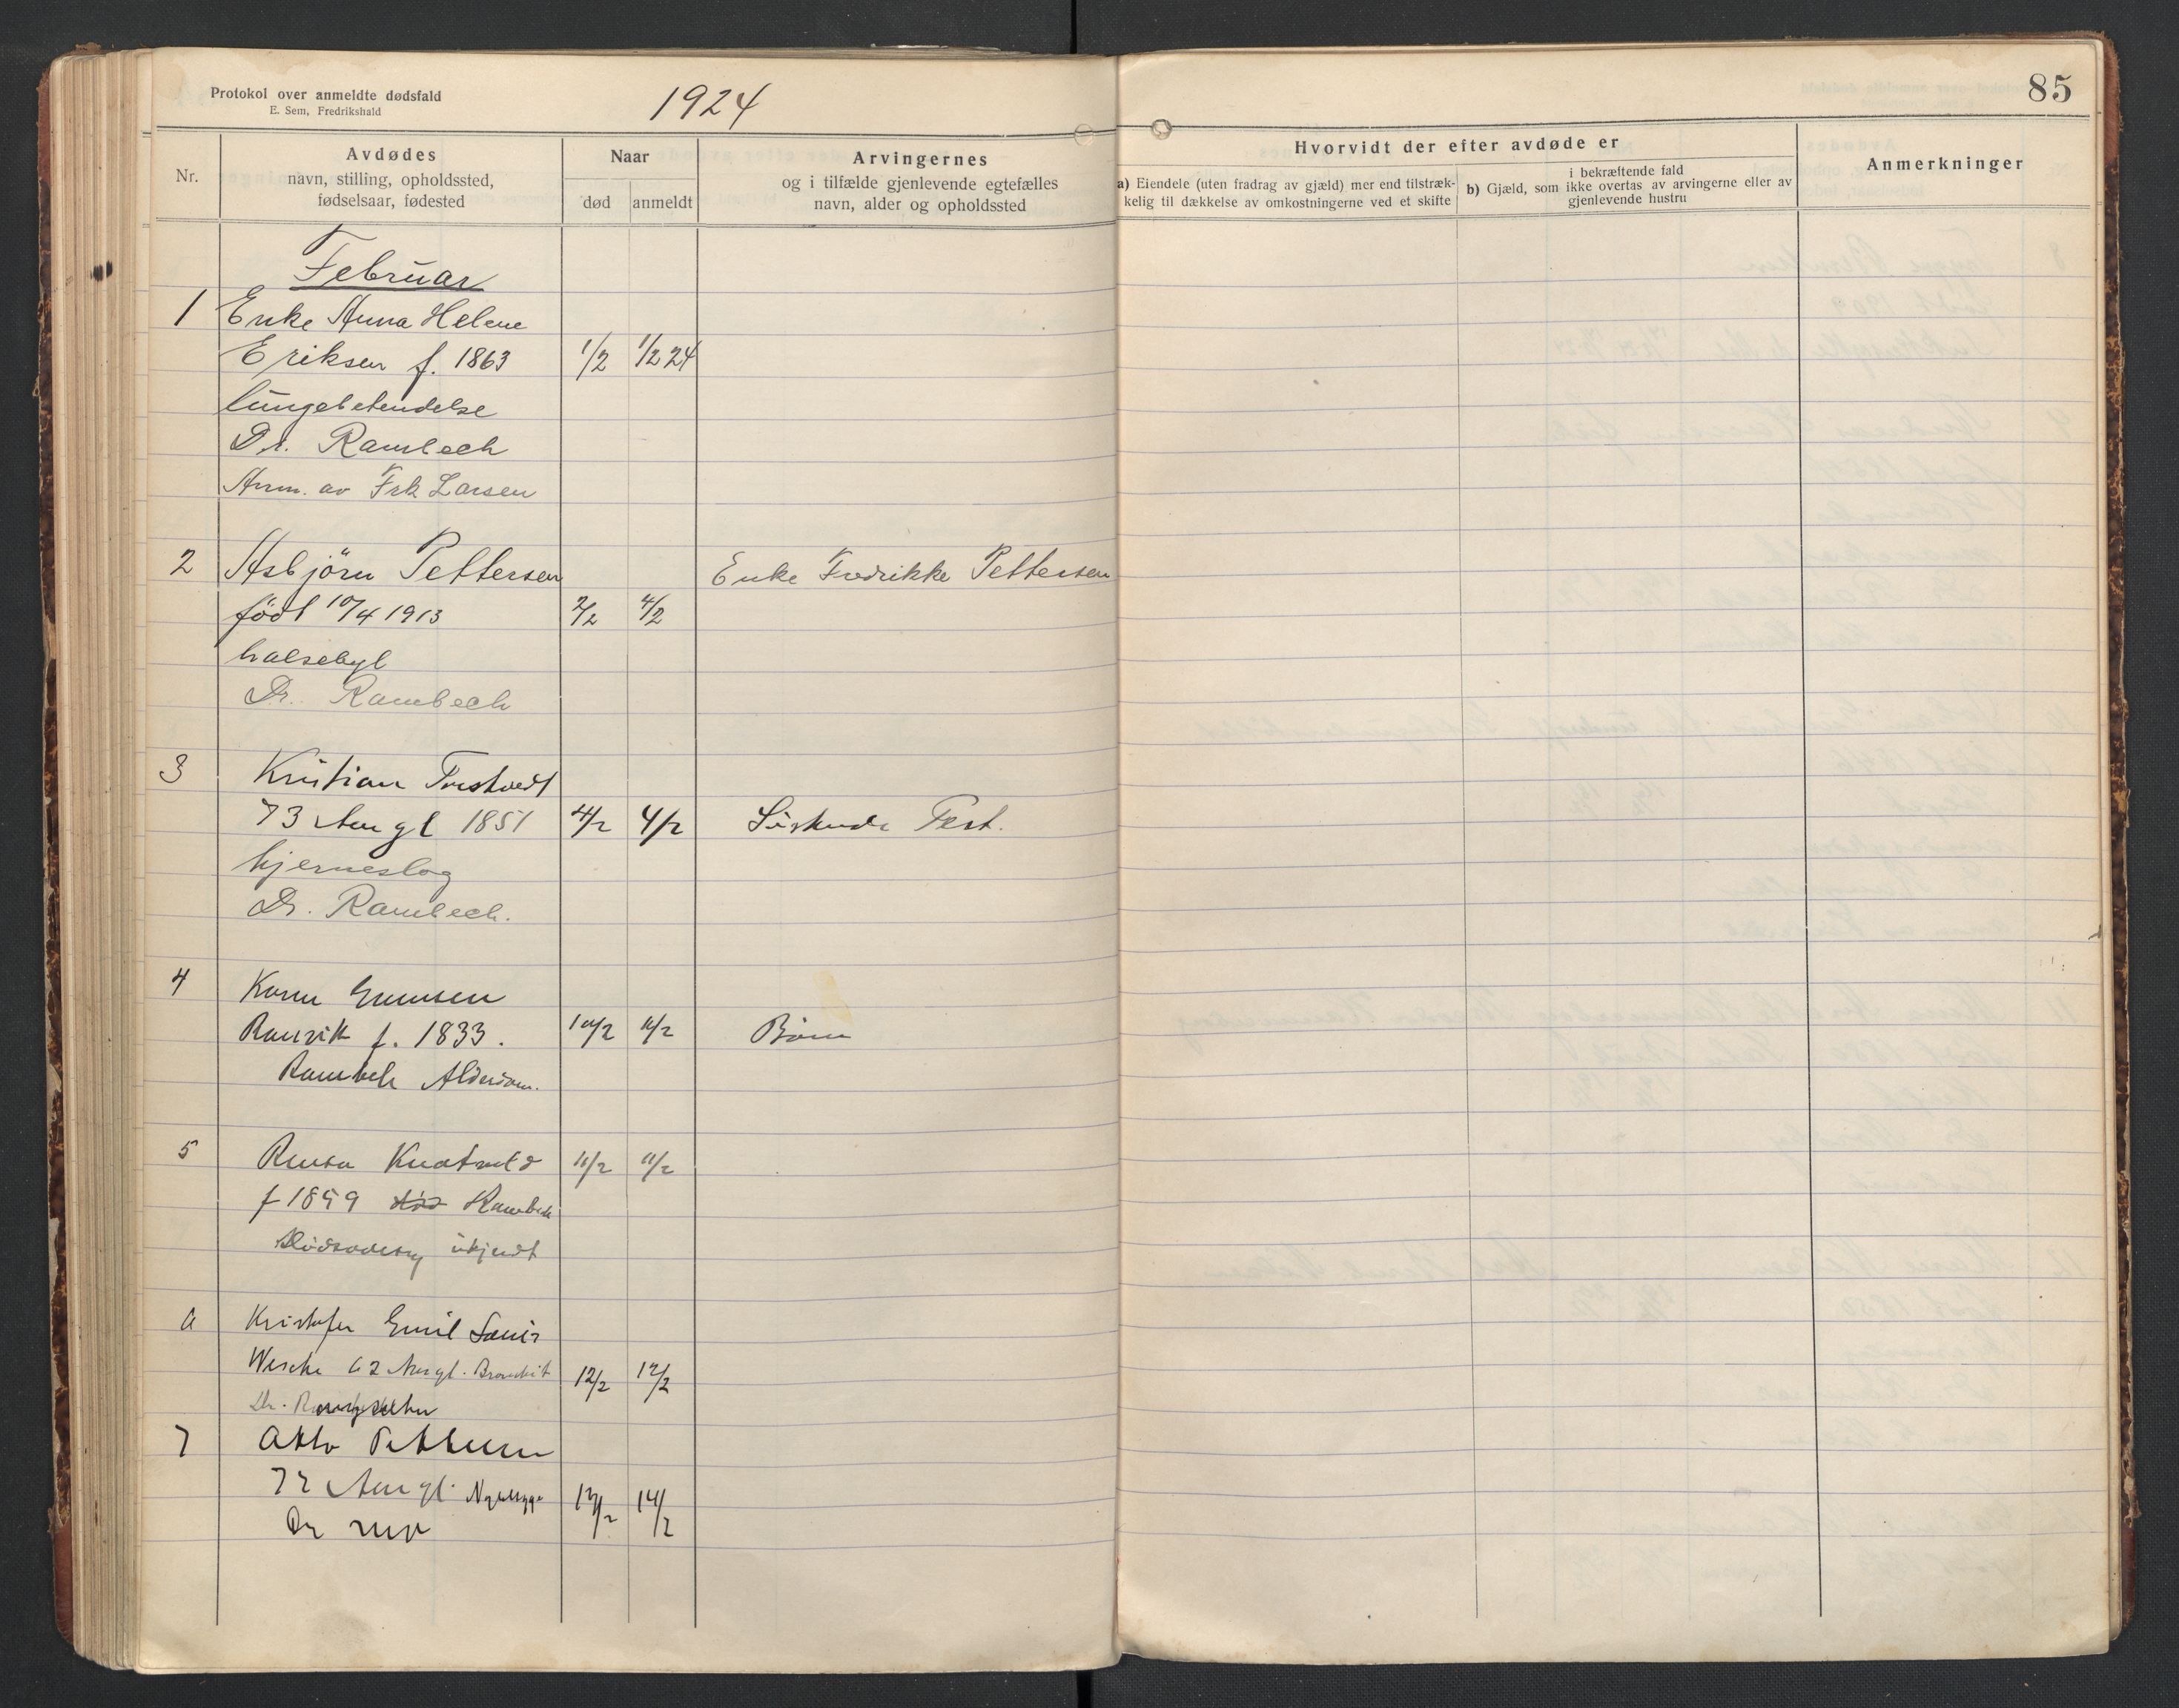 Protokol over anmeldte dødsfald
E. Sem, Fredrikshald
1924
85
Nr.
Avdødes
navn, stilling, opholdssted,
fødselsaar, fødested
Naar
død anmeldt
Arvingernes
og i tilfælde gjenlevende egtefælles
navn, alder og opholdssted
Hvorvidt der efter avdøde er
a) Eiendele (uten fradrag av gjæld) mer end tilstræk-
kelig til dækkelse av omkostningerne ved et skifte
i bekræftende fald
b) Gjæld, som ikke overtas av arvingerne eller av
gjenlevende hustru
Anmerkninger
Februar
1 Enke Anna Helene
Eriksen f. 1863 1/2 1/2 24
lungebetendelse
Dr. Rambech
Anm. av Frk Larsen
2 Asbjörn Pettersen Enke Fredrikke Pettersen
födt 10/4 1913 2/2 4/2
halsebyl
Dr. Rambech
3 Kristian
73 Aar gl 1851 4/2 4/2 Test.
hjerneslag
Dr. Rambech.
4 Karen
f. 1833. 10/2 11/2 Börn
Rambech Alderdom.
5 11/2 11/2
f 1859 Rambech
ukjendt
6 Kristofer Emil
62 Aar gl. 12/2 12/2
Dr.
7 Otto Pettersen
72 Aar gl. 13/2 14/2
Dr